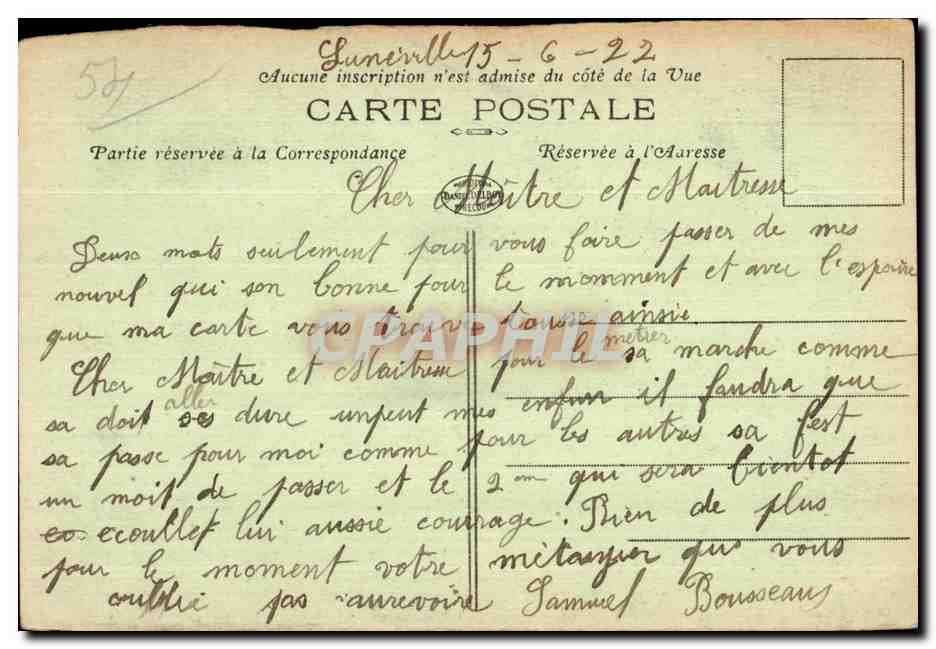 54
Lunéville 15-6-22
Aucune inscription n'est admise du côté de la Vue
CARTE POSTALE
Partie réservée à la Correspondance
Réservée à l'Adresse
Cher Maître et Maitresse
Deux mots seulement pour vous faire passer de mes
nouvel qui son bonne pour le momment et avec l'espoire
que ma carte vous trouve tousse ainsie
Cher Maître et Maitresse pour le metier sa marche comme
sa doit aller dure unpeut mes enfun il faudra que
sa passe pour moi comme pour les autres sa fest
un moit de passer et le 2 em qui sera bientot
ecoullet lui aussie courage. Rien de plus
pour le moment votre métauyer qus vous
oublie pas aurevoire Samuel Bousseaus
CPAPHIL